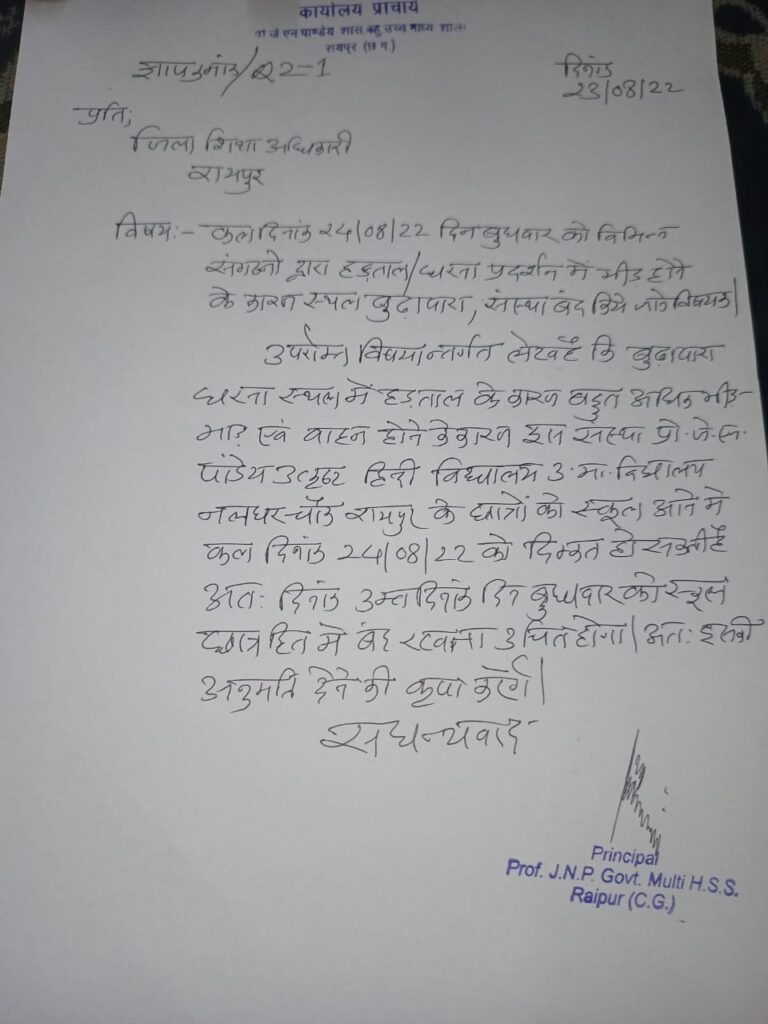 कार्यालय प्राचार्य
जे एन पाण्डेय शास बहु उच्च माध्य शाला
रायपुर (छ ग.)
ज्ञाप क्रमांक/Q2-1
दिनांक
23/08/22
प्रति,
जिला शिक्षा अधिकारी
रायपुर
विषय:- कल दिनांक 24/08/22 दिन बुधवार को विभिन्न
संगठनो द्वारा हड़ताल/धरना प्रदर्शन में भीड़ होने
के कारन स्थल बुढ़ापारा, संस्था बंद किये जाने विषयक।
उपरोक्त विषयान्तर्गत लेख है कि बुढ़ापारा
धरना स्थल में हड़ताल के कारण बहुत अधिक भीड़-
भाड़ एवं वाहन होने के कारण इस संस्था प्रो. जे. एन.
पांडेय उत्कृष्ट हिन्दी विद्यालय उ. मा. विद्यालय
नलघर चौक रायपुर के छात्रों को स्कूल आने मे
कल दिनांक 24/08/22 को दिक्कत हो सकती है
अत: दिनांक उक्त दिनांक दिन बुधवार को स्कूल
छात्र हित मे बंद रखना उचित होगा। अत: इसकी
अनुमति देने की कृपा करेंगे।
सधन्यवाद
Principal
Prof. J.N.P. Govt. Multi H.S.S.
Raipur (C.G.)